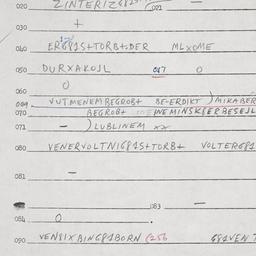 020 ZINTERIZ681S 021
030 +
040 ER681S+TORB+DER MLXOME
050 DURXAKOJL 047 O
060 O
069 VUTMENEMBEGROB+ BE-ERDIKT )MIKABER
070 BEGROB+ NEMINSKSERBESEJL
071 — )LUBLINEM xx
080 VENERVOLTNI681S+TORB+ VOLTER681
081 —
083 —
084 O
090 VEN8IXBING81BORN (256 681VENT